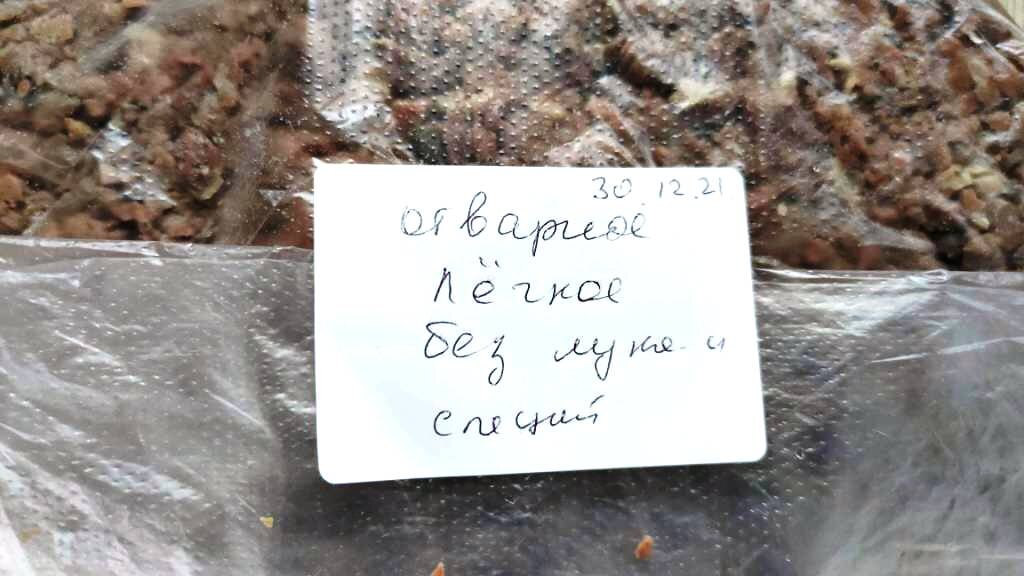 30.12.21
отварное
лёгкое
без лука и
специй